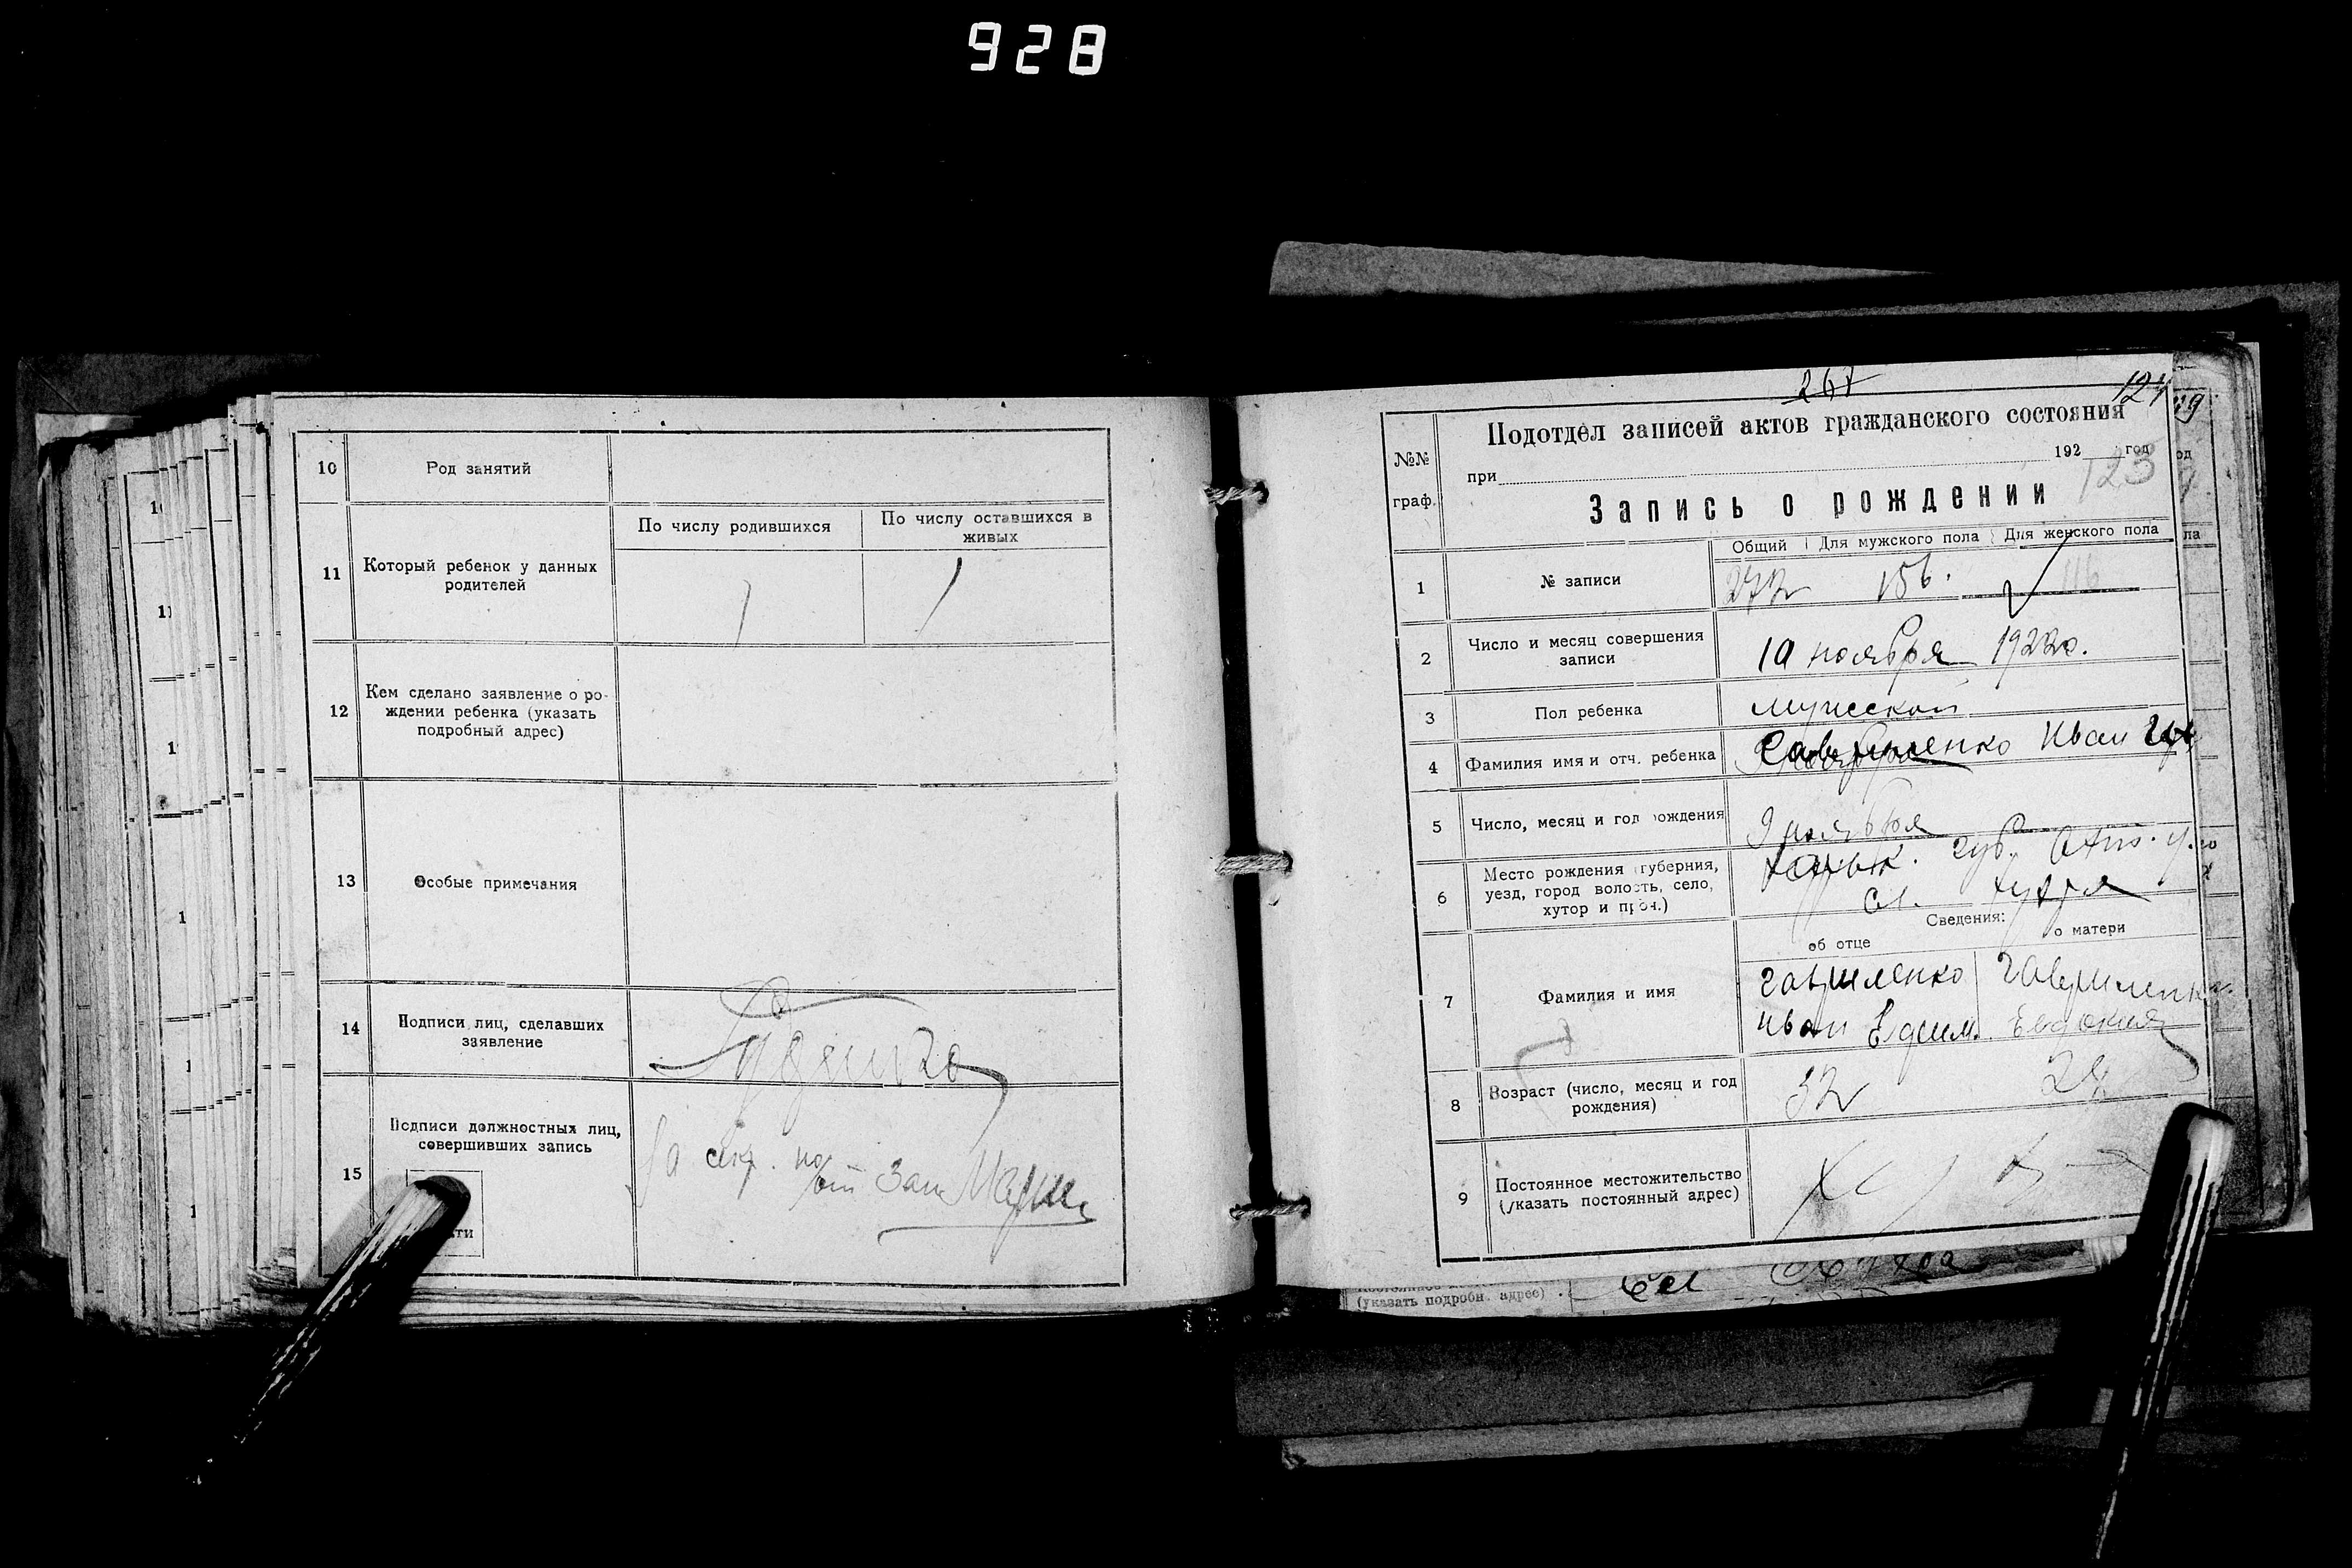 928
10
Род занятий
11
Который ребенок у данных
родителей
По числу родившихся
По числу оставшихся в
живых
1
1
12
Кем сделано заявление о ро-
ждении ребенка (указать
подробный адрес)
13
Особые примечания
14
Подписи лиц, сделавших
заявление
15
Подписи должностных лиц,
совершивших запись
За секр.
Зав
267
124
№№
граф.
Подотдел записей актов гражданского состояния
при 192 год
123
Запись о рождении
Общий Для мужского пола Для женского пола
1
№ записи
272 156. 116
2
Число и месяц совершения
записи
10 ноября 1922г.
3
Пол ребенка
мужской
4
Фамилия имя и отч. ребенка
Гавриленко Иван
5
Число, месяц и год рождения
9 ноября
6
Место рождения (губерния,
уезд, город волость, село,
хутор и проч.)
Харьк. губ. Ахт. у.
сл.
Сведения:
об отце
о матери
7
Фамилия и имя
Гавриленко Гавриленко
Иван Ефим. Евдокия
8
Возраст (число, месяц и год
рождения)
32
9
Постоянное местожительство
(указать постоянный адрес)
(указать подробн. адрес)